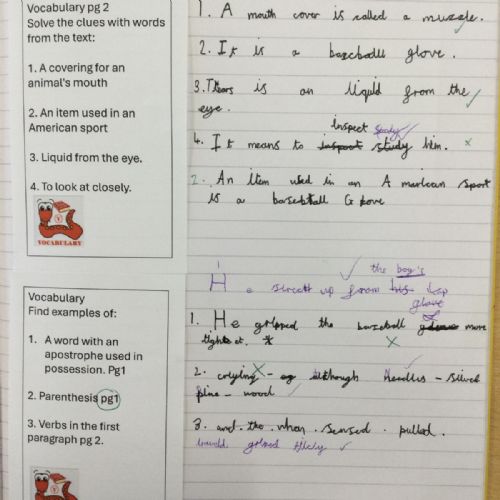 Vocabulary pg 2
Solve the clues with words
from the text:
1. A covering for an
animal's mouth
2. An item used in an
American sport
3. Liquid from the eye.
4. To look at closely.
VOCABULARY
1. A mouth cover is called a muzzle.
2. It is a baseball glove.
3. Tears is an liquid from the
eye.
inspect study
4. It means to inspect study him.
2. An item used in an A marican sport
is a baseball G love
Vocabulary
Find examples of:
1. A word with an
apostrophe used in
possession. Pg1
2. Parenthesis pg1
3. Verbs in the first
paragraph pg 2.
the boy's
He up from his lap
glove
1. He gripped the baseball more
tight
2. - although Needles - silver
pine - wood
3. and. the. when. sensed. pulled.